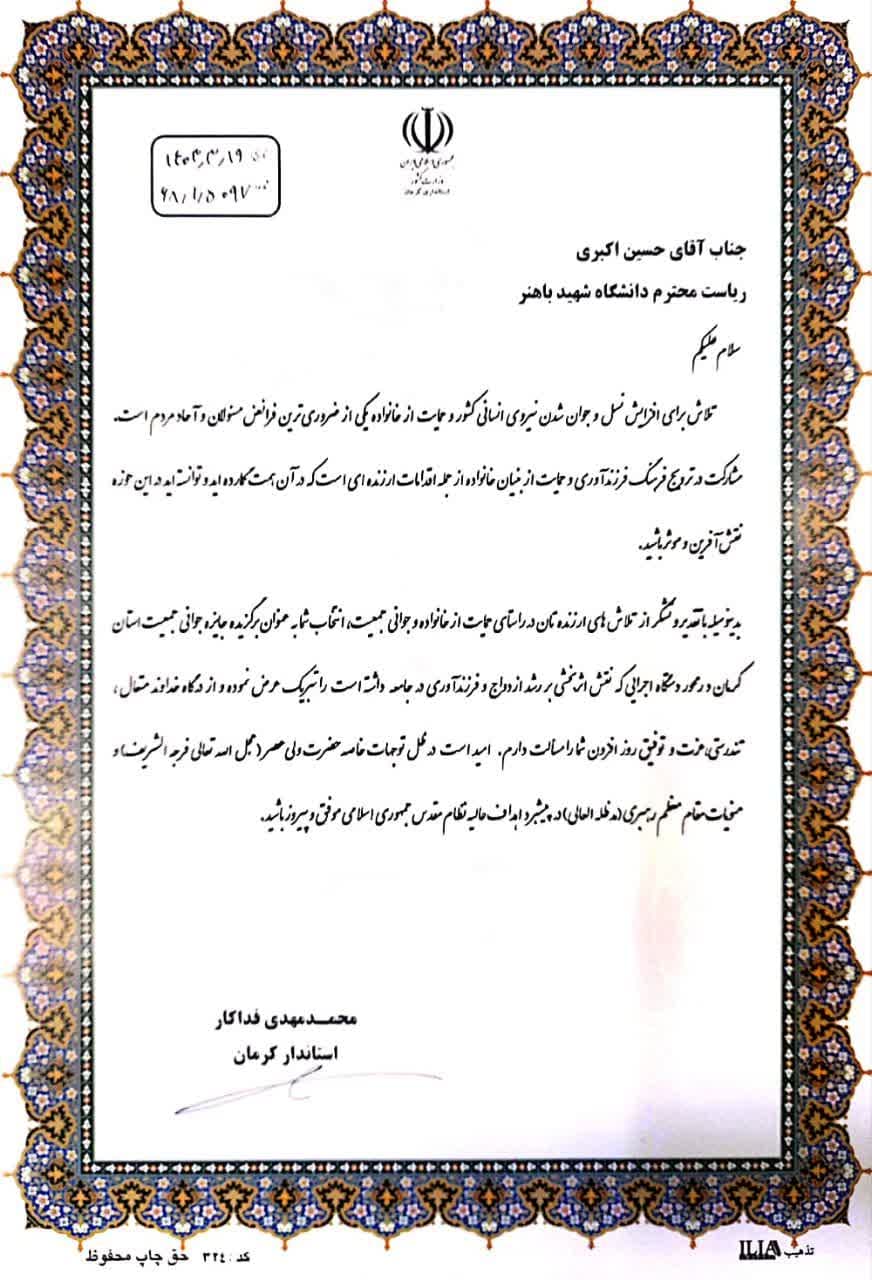 جمهوری اسلامی ایران
وزارت کشور
استانداری کرمان
۱۴۰۳,۳,۱۹
۶۸,۱,۵۰۹۷
جناب آقای حسین اکبری
ریاست محترم دانشگاه شهید باهنر
سلام علیکم
تلاش برای افزایش نسل و جوان شدن نیروی انسانی کشور و حمایت از خانواده یکی از ضروری ترین فرائض مسئولان و آحاد مردم است.
مشارکت در ترویج فرهنگ فرزندآوری و حمایت از بنیان خانواده از جمله اقدامات ارزنده ای است که در آن همت گمارده اید و توانسته اید در این حوزه
نقش آفرین و موثر باشید.
بدینوسیله با تقدیر و تشکر از تلاش های ارزنده تان در راستای حمایت از خانواده و جوانی جمعیت، انتخاب شما به عنوان برگزیده جایزه جوانی جمعیت استان
کرمان در محور دستگاه اجرایی که نقش اثربخشی بر رشد ازدواج و فرزندآوری در جامعه داشته است را تبریک عرض نموده و از درگاه خداوند متعال،
تندرستی، عزت و توفیق روز افزون شما را مسالت دارم. امید است در ظل توجهات خاصه حضرت ولی عصر (عجل الله تعالی فرجه الشریف) و
منویات مقام معظم رهبری (مدظله العالی) در پیشبرد اهداف عالیه نظام مقدس جمهوری اسلامی موفق و پیروز باشید.
محمدمهدی فداکار
استاندار کرمان
تذهیب ILIA
کد: ۳۲۴ حق چاپ محفوظ